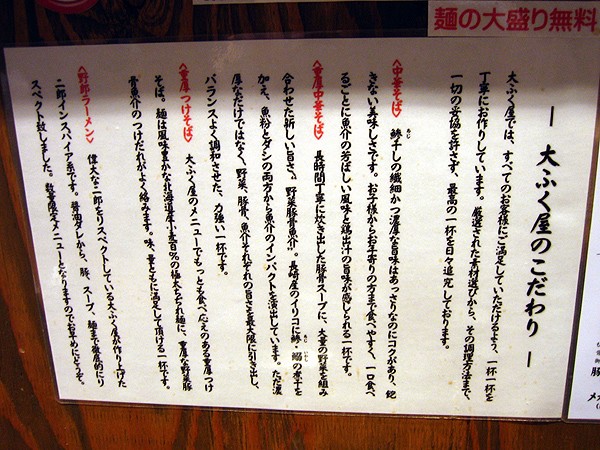 麺の大盛り無料
― 大ふく屋のこだわり ―
大ふく屋では、すべてのお客様にご満足していただけるよう、一杯一杯を
丁寧にお作りしています。厳選された素材選びから、その調理方法まで、
一切の妥協を許さず、最高の一杯を日々追究しております。
<中華そば> 鯵干しの繊細かつ濃厚な旨味はあっさりなのにコクがあり、飽
きない美味しさです。お子様からお年寄りの方まで食べやすく、一口食べ
るごとに魚介の芳ばしい風味と鶏出汁の旨味が感じられる一杯です。
<重厚中華そば> 長時間丁寧に炊き出した豚骨スープに、大量の野菜を組み
合わせた新しい旨さ。"野菜豚骨魚介"。長崎産のイリコに鯵・鰯の煮干を
加え、魚粉とダシの両方から魚介のインパクトを演出しています。ただ濃
厚なだけではなく、野菜、豚骨、魚介それぞれの旨さを最大限に引き出し、
バランスよく調和させた、力強い一杯です。
<重厚つけそば> 大ふく屋のメニューでもっとも食べ応えのある重厚つけ
そば。麺は風味豊かな北海道産小麦百%の極太ちぢれ麺に、重厚な野菜豚
骨魚介のつけだれがよく絡みます。味、量ともに満足して頂ける一杯です。
<野郎ラーメン> 偉大な二郎をリスペクトしている大ふく屋が作り上げた
二郎インスパイア系です。醤油ダレから、豚、スープ、麺まで徹底的にリ
スペクト致しました。数量限定メニューとなりますのでお早めにどうぞ。
豚
メ